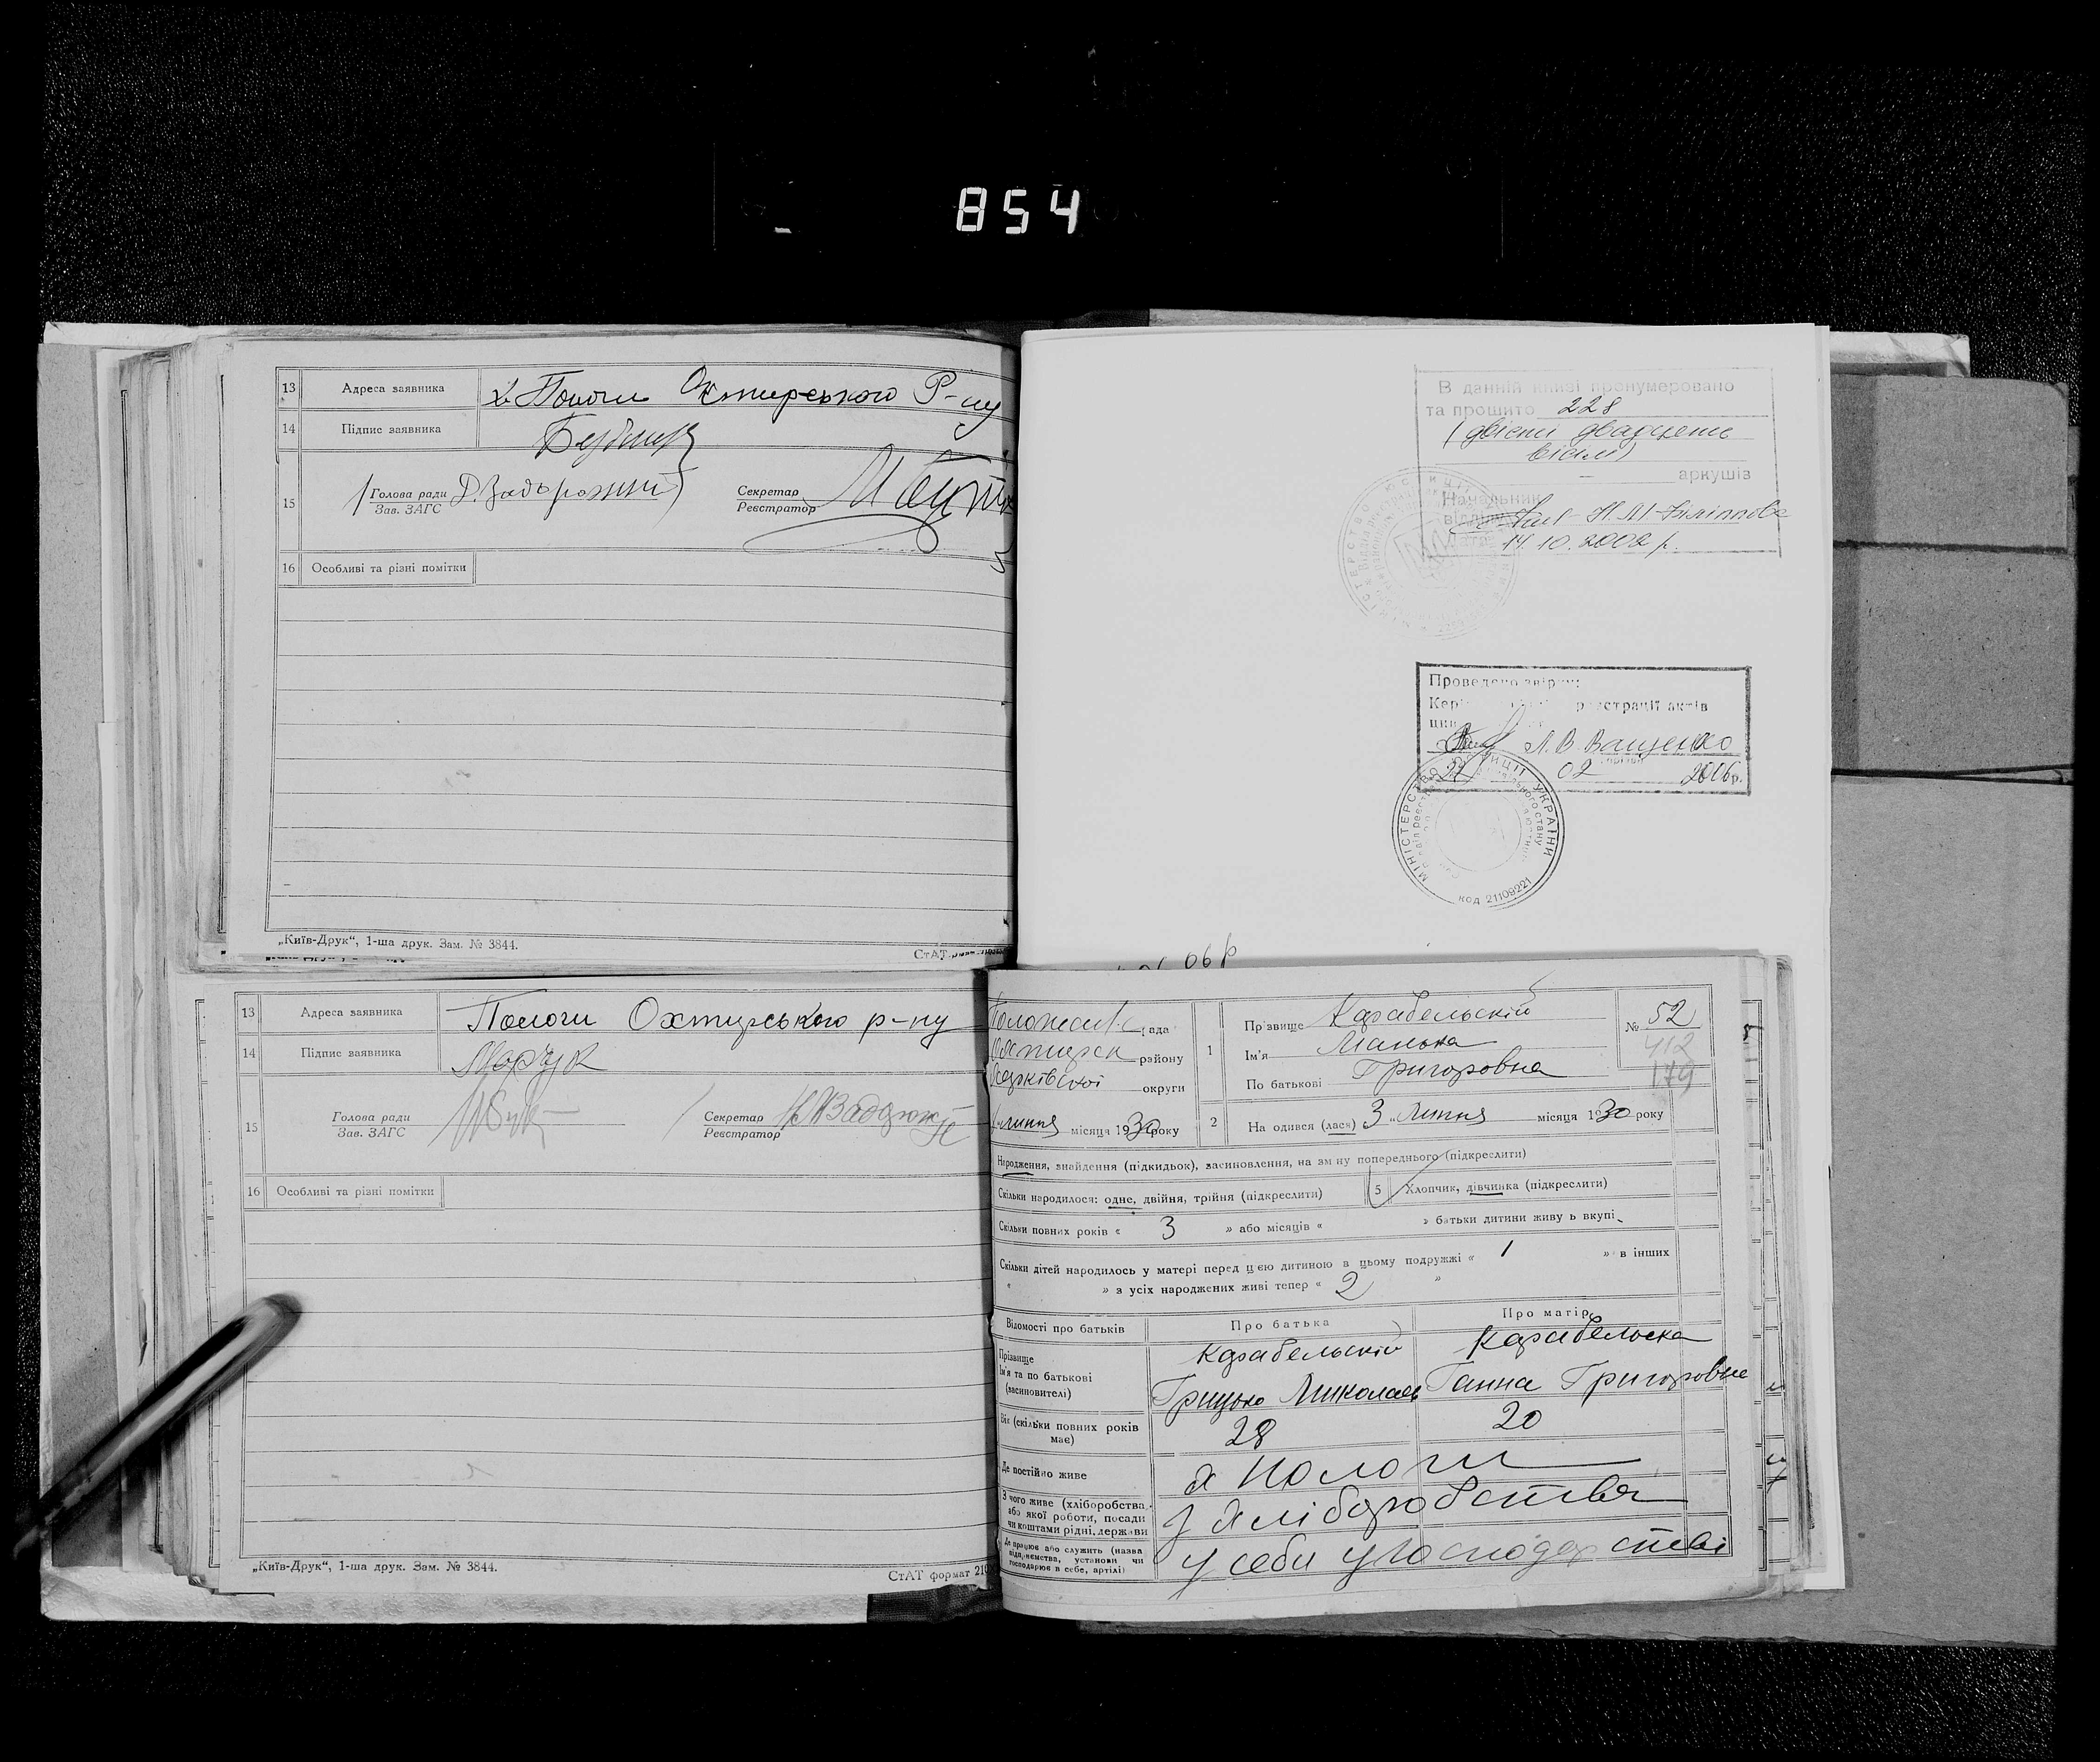 854
13 Адреса заявника х. Пологи Охтирського Р-ну
14 Підпис заявника
15 Голова ради Д. Задорожний Секретар
Зав. ЗАГС Реєстратор
16 Особливі та різні помітки
„Київ-Друк“, 1-ша друк. Зам. № 3844. СтАТ
В данній книзі пронумеровано
та прошито 228
(двісти двадцять
вісім)
аркушів
Начальник
відділу Н.М.
14.10.2002 р.
Проведено звірку
реєстрації актів
Л.В. Ващенко
22 02 2006р.
МІНІСТЕРСТВО ЮСТИЦІЇ УКРАЇНИ
код 21109221
06р
13 Адреса заявника Пологи Охтирського р-ну
14 Підпис заявника Марчук
15 Голова ради Секретар
Зав. ЗАГС Реєстратор
16 Особливі та різні помітки
„Київ-Друк“, 1-ша друк. Зам. № 3844. СтАТ формат 210
рада
району
Харківської округи
липня місяця 1930 року
1 Прізвище Карабельскій № 52
Ім'я Манька 412
По батькові Григоровна 179
2 На одився (лася) 3 „ Липня місяця 1930 року
Народження, знайдення (підкидьок), засиновлення, на зм ну попереднього (підкреслити)
Скільки народилося: одне, двійня, трійня (підкреслити) 5 Хлопчик, дівчинка (підкреслити)
Скільки повних років « 3 » або місяців « » батьки дитини живу ь вкупі
Скільки дітей народилось у матері перед цією дитиною в цьому подружжі « 1 » в інших
« » з усіх народжених живі тепер « 2 »
Відомості про батьків Про батька Про матір
Прізвище Карабельскій Карабельска
Ім'я та по батькові
(засиновителі) Грицько Миколаев Ганна Григоровна
Вік (скільки повних років
має) 28 20
Де постійно живе х Пологи
З чого живе (хліборобства,
або якої роботи, посади
чи коштами рідні, держави з хліборобства
Де працює або служить (назва
підприємства, установи чи
господарює в себе, артілі) у себи у господарстві